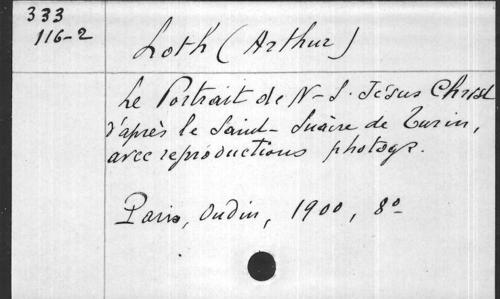 333
116-2
Loth (Arthur)
Le Portrait de N-S. Jésus Christ
d'après le Saint-Suaire de Turin,
avec reproductions photogr.
Paris, Oudin, 1900, 8º